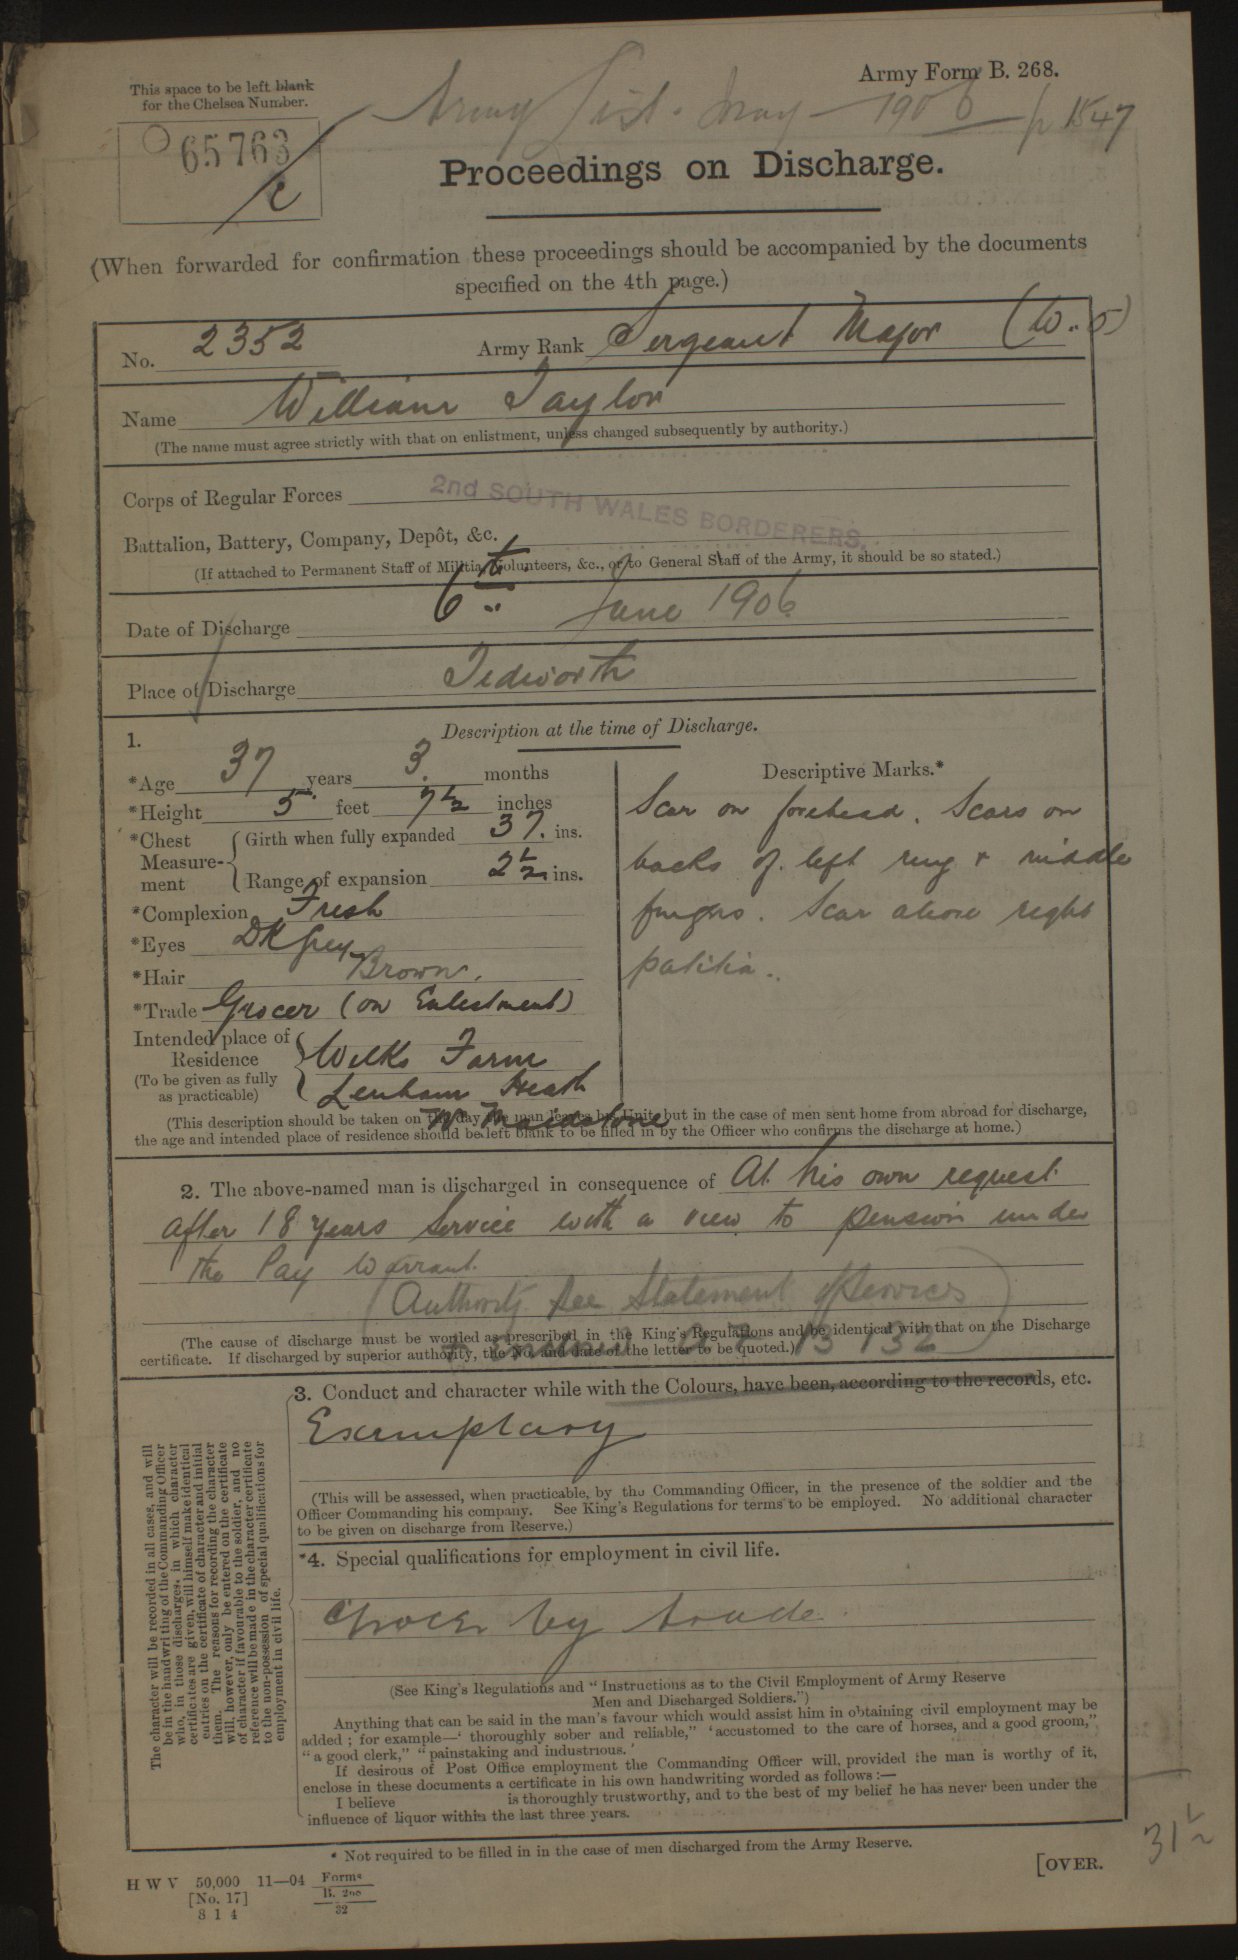 Army Form B. 268.
This space to be left blank
for the Chelsea Number.
Army List. May - 1906 p 1547
65763
Proceedings on Discharge.
(When forwarded for confirmation these proceedings should be accompanied by the documents
specified on the 4th page.)
No. 2352 Army Rank Sergeant Major (W.O)
Name William Taylor
(The name must agree strictly with that on enlistment, unless changed subsequently by authority.)
Corps of Regular Forces
2nd SOUTH WALES BORDERERS.
Battalion, Battery, Company, Depôt, &c.
(If attached to Permanent Staff of Militia, Volunteers, &c., or to General Staff of the Army, it should be so stated.)
Date of Discharge 6th June 1906
Place of Discharge Tedworth
1. Description at the time of Discharge.
*Age 37 years 3 months
*Height 5 feet 7½ inches
*Chest Measure-ment
Girth when fully expanded 37. ins.
Range of expansion 2½ ins.
*Complexion Fresh
*Eyes DK Grey
*Hair Brown.
*Trade Grocer (on Enlistment)
Intended place of
Residence
(To be given as fully
as practicable)
Wilks Farm
Lenham Heath
Nr Maidstone
Descriptive Marks.*
Scar on forehead. Scars on
backs of left ring & middle
fingers. Scar above right
patilia.
(This description should be taken on the day the man leaves his Unit, but in the case of men sent home from abroad for discharge,
the age and intended place of residence should be left blank to be filled in by the Officer who confirms the discharge at home.)
2. The above-named man is discharged in consequence of At his own request
after 18 years Service with a view to pension under
the Pay Warrant.
(Authority See Statement of Services
AF B 132)
(The cause of discharge must be worded as prescribed in the King's Regulations and be identical with that on the Discharge
certificate. If discharged by superior authority, the No. and date of the letter to be quoted.)
3. Conduct and character while with the Colours, have been, according to the records, etc.
Exemplary
(This will be assessed, when practicable, by the Commanding Officer, in the presence of the soldier and the
Officer Commanding his company. See King's Regulations for terms to be employed. No additional character
to be given on discharge from Reserve.)
*4. Special qualifications for employment in civil life.
Grocer by trade.
(See King's Regulations and "Instructions as to the Civil Employment of Army Reserve
Men and Discharged Soldiers.")
Anything that can be said in the man's favour which would assist him in obtaining civil employment may be
added; for example—' thoroughly sober and reliable," 'accustomed to the care of horses, and a good groom,"
"a good clerk," "painstaking and industrious.'
If desirous of Post Office employment the Commanding Officer will, provided the man is worthy of it,
enclose in these documents a certificate in his own handwriting worded as follows:—
I believe is thoroughly trustworthy, and to the best of my belief he has never been under the
influence of liquor within the last three years.
The character will be recorded in all cases, and will
be in the handwriting of the Commanding Officer
who, in those discharges, in which character
certificates are given, will himself make identical
entries on the certificate of character and initial
them. The reasons for recording the character
will, however, only be entered on the certificate
of character if favourable to the soldier, and no
reference will be made in the character certificate
to the non-possession of special qualifications for
employment in civil life.
* Not required to be filled in in the case of men discharged from the Army Reserve.
[OVER.
31½
H W V 50,000 11—04 Forms
[No. 17] B. 268
8 1 4 32